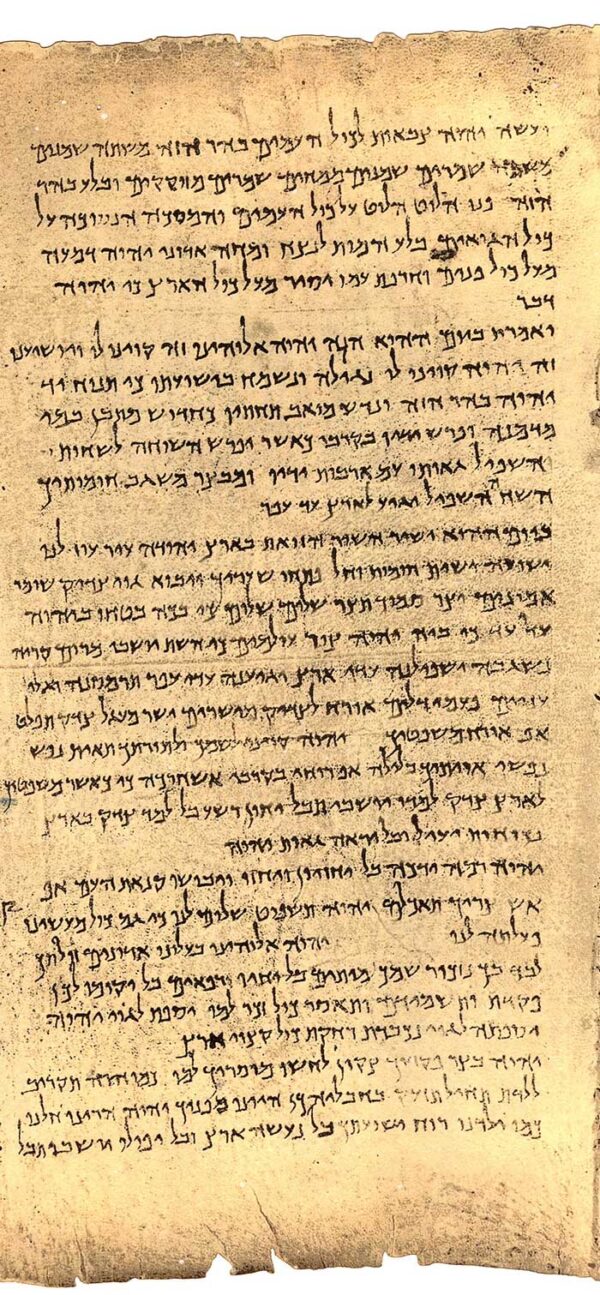 ועשה יהוה צבאות לכול העמים בהר הזה משתה שמנים
משתה שמרים שמנים ממחים שמרים מזוקקים ובלע בהר
הזה פני הלוט הלוט על כול העמים והמסכה הנסוכה על
כול הגואים בלע המות לנצח ומחה אדוני יהוה דמעה
מעל כול פנים וחרפת עמו יסיר מעל כול הארץ כי יהוה
דבר
ואמרת ביום ההוא הנה יהוה אלוהינו זה קוינו לו ויושיענו
זה יהוה קוינו לו נגילה ונשמח בישועתו כי תנוח יד
יהוה בהר הזה ונדש מואב תחתיו כחדוש מתבן במי
מדמנה ופרש ידיו בקרבו כאשר יפרש השוחה לשחות
והשפיל גאותו עם ארבות ידיו ומבצר משגב חומותיך
השח השפיל יגיע לארץ עד עפר
ביום ההוא ישיר השיר הזואת בארץ יהודה עיר עוז לנו
ישועה ישית חומות וחל פתחו שעריך ויבוא גוי צדיק שומר
אמונים יצר סמוך תצר שלום שלום כי בכה בטחו ביהוה
עדי עד כי ביה יהוה צור עולמים כי השח יושבי מרום קריה
נשגבה ישפילנה עדי ארץ יגיענה עדי עפר תרמסנה רגלי
עניים פעמי דלים אורח לצדיק מישרים ישר מעגל צדק תפלט
אף אורח משפטיך יהוה קוינו לשמך ולתורתך תאות נפש
נפשי אויתיך בלילה אף רוחי בקרבי אשחרכה כי כאשר משפטיך
לארץ צדק למדו יושבי תבל יחון רשע בל למד צדק בארץ
נכוחות יעול ובל יראה גאות יהוה
יהוה רמה ידכה בל יחזיון ויחזו ויבושו קנאת העם אף
אש צריך תאכלם יהוה תשפוט שלום לנו כי גם כול מעשינו
פעלתה לנו יהוה אלוהינו בעלונו אדונים זולתך
לבד בך נזכור שמך מיתים בל יחיו ורפאים בל יקומו לכן
פקדת ותשמידם ותאסר כול זכר למו יספת לגוי יהוה
יספתה לגוי נכבדת רחקת כול קצוי ארץ
יהוה בצר פקדוך צקון לחשו מוסריך למו כמו הרה תקריב
ללדת תחיל תזעק בחבליה כן היינו מפניך יהוה הרינו חלנו
כמו ילדנו רוח ישועתך בל נעשה ארץ ובל יפולו יושבי תבל